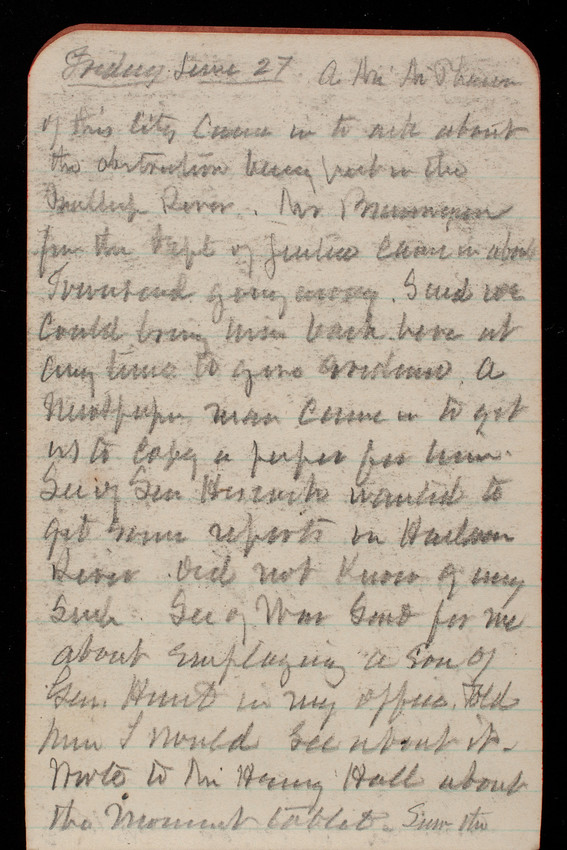 Friday June 27 A Mr
of this City Came in to ask about
the obstruction being put in the
River. Mr Brannigan
from the Dept of Justice Came in about
Townsend going away. Said we
Could bring him back here at
any time to give evidence. A
Newspaper man Came in to get
us to Copy a paper for him.
Sec of Sen Hiscock wanted to
get some reports on Harlem
River. Did not Know of any
Such. Sec of War Send for me
about Employing a Son of
Gen Hunt in my office. Told
him I would See about it.
Wrote to Mr Henry Hall about
the Monument tablet. Saw the